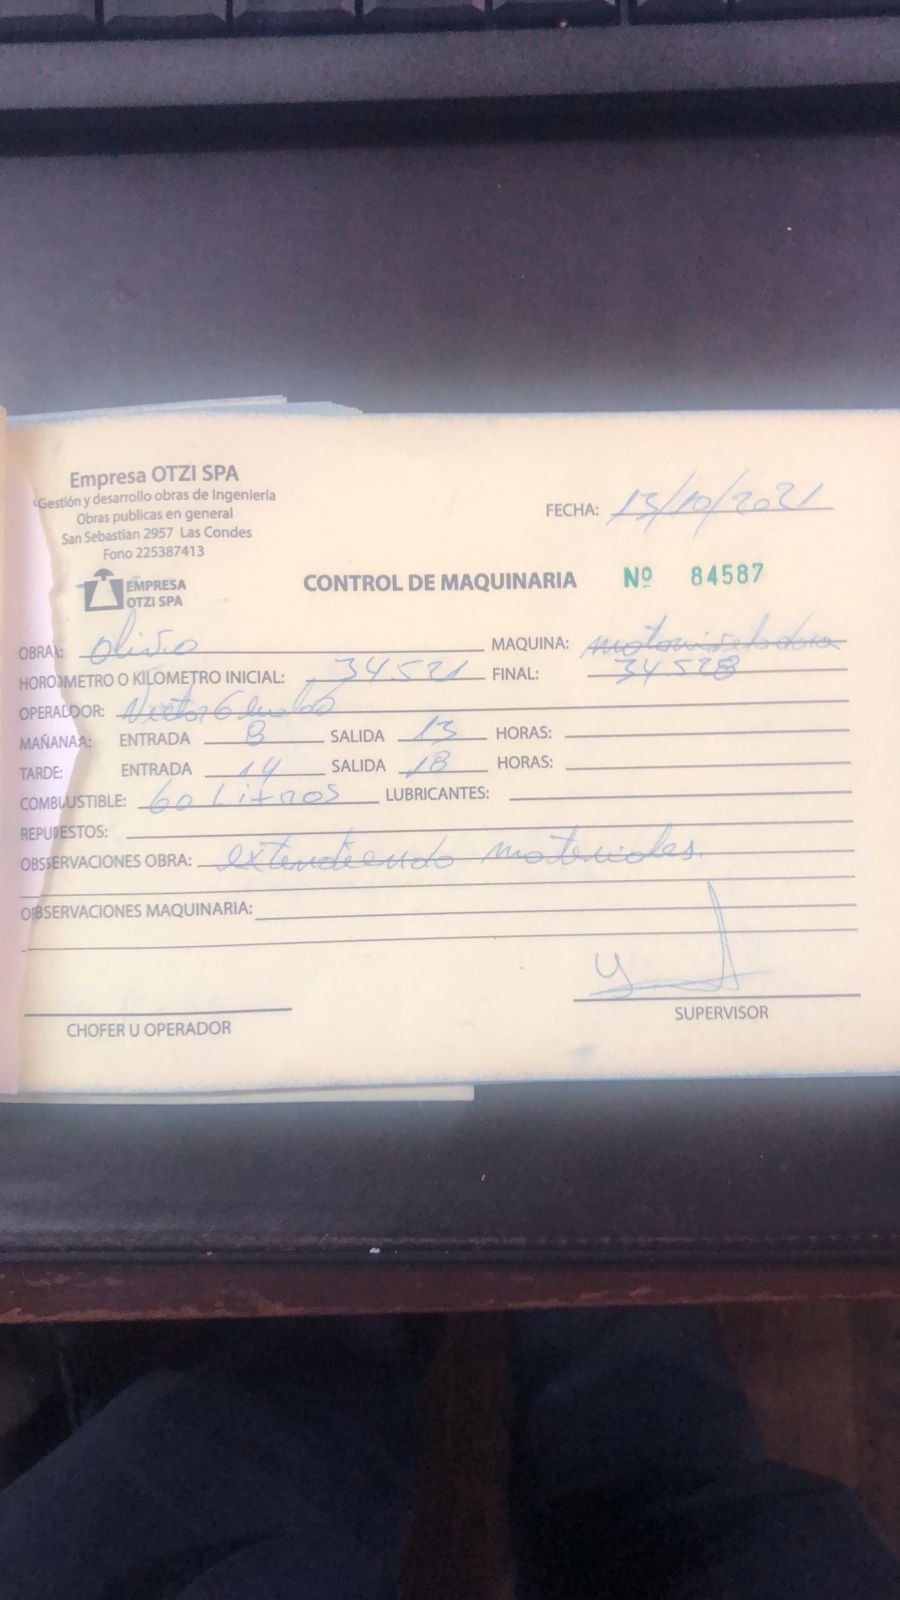 Empresa OTZI SPA
Gestión y desarrollo obras de Ingeniería
Obras publicas en general
San Sebastian 2957 Las Condes
Fono 225387413
FECHA: 13/10/2021
EMPRESA
OTZI SPA
CONTROL DE MAQUINARIA Nº 84587
OBRA: Olivo MAQUINA: motoniveladora
HOROMETRO O KILOMETRO INICIAL: 34521 FINAL: 34528
OPERADOR: Victor
MAÑANA: ENTRADA 8 SALIDA 13 HORAS:
TARDE: ENTRADA 14 SALIDA 18 HORAS:
COMBUSTIBLE: 60 Litros LUBRICANTES:
REPUESTOS:
OBSERVACIONES OBRA: extendiendo materiales.
OBSERVACIONES MAQUINARIA:
CHOFER U OPERADOR
SUPERVISOR